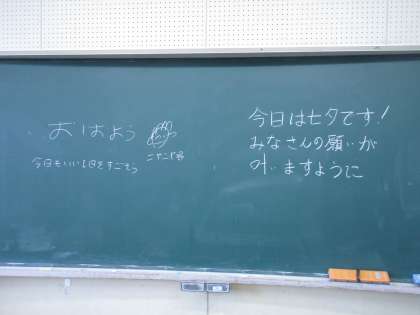 おはよう
今日もいい1日をすごそう
今日は七夕です!
みなさんの願いが
叶いますように